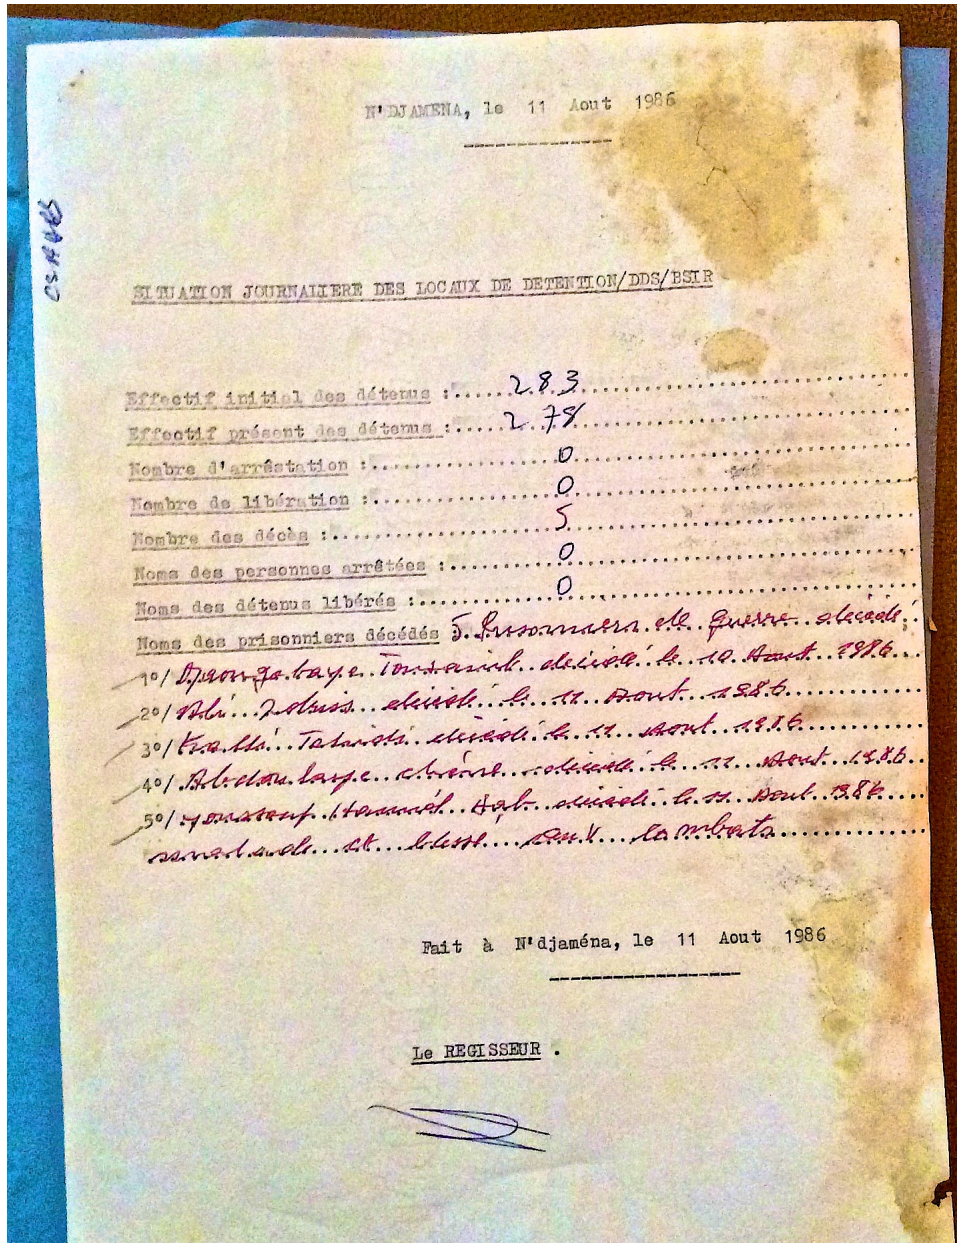 N'DJAMENA, le 11 Aout 1986
SITUATION JOURNALIERE DES LOCAUX DE DETENTION/DDS/BSIR
Effectif initial des détenus :......283
Effectif présent des détenus :......278
Nombre d'arréstation :......0
Nombre de libération :......0
Nombre des décès :......5
Noms des personnes arrêtées :......0
Noms des détenus libérés :......0
Noms des prisonniers décédés 5 Prisonniers de guerre décédé
1°/ décédé le 10 Aout 1986
2°/ décédé le 11 Aout 1986
3°/ décédé le 11 Aout 1986
4°/ Abdoulaye décédé le 11 Aout 1986
5°/ décédé le 11 Aout 1986
malade et blessé aux combats
Fait à N'djaména, le 11 Aout 1986
Le REGISSEUR .